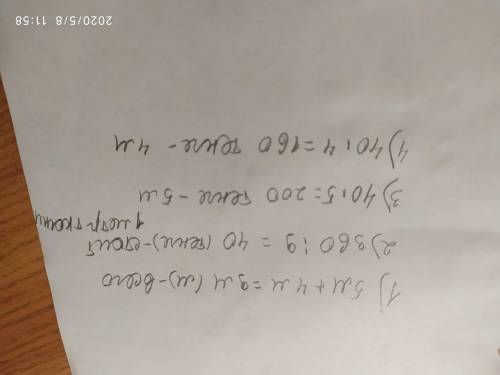 1) 5м + 4м = 9м (м) - всего
2) 360 : 9 = 40 (тенге) - стоит
1 метр ткани
3) 40 · 5 = 200 тенге - 5м
4) 40 · 4 = 160 тенге - 4м
2020/5/8 11:58